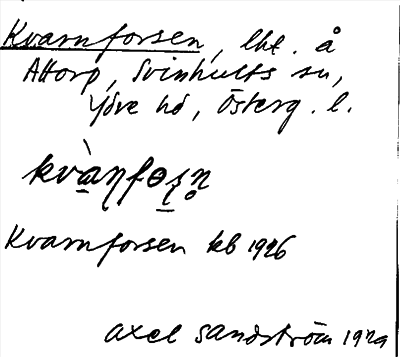 Kvarnforsen, lht. å
Attorp, Svinhults sn,
Ydre hd, Österg. l.
kvàɳfɵʂɳ̥
Kvarnforsen kb 1926
Axel Sandström 1929